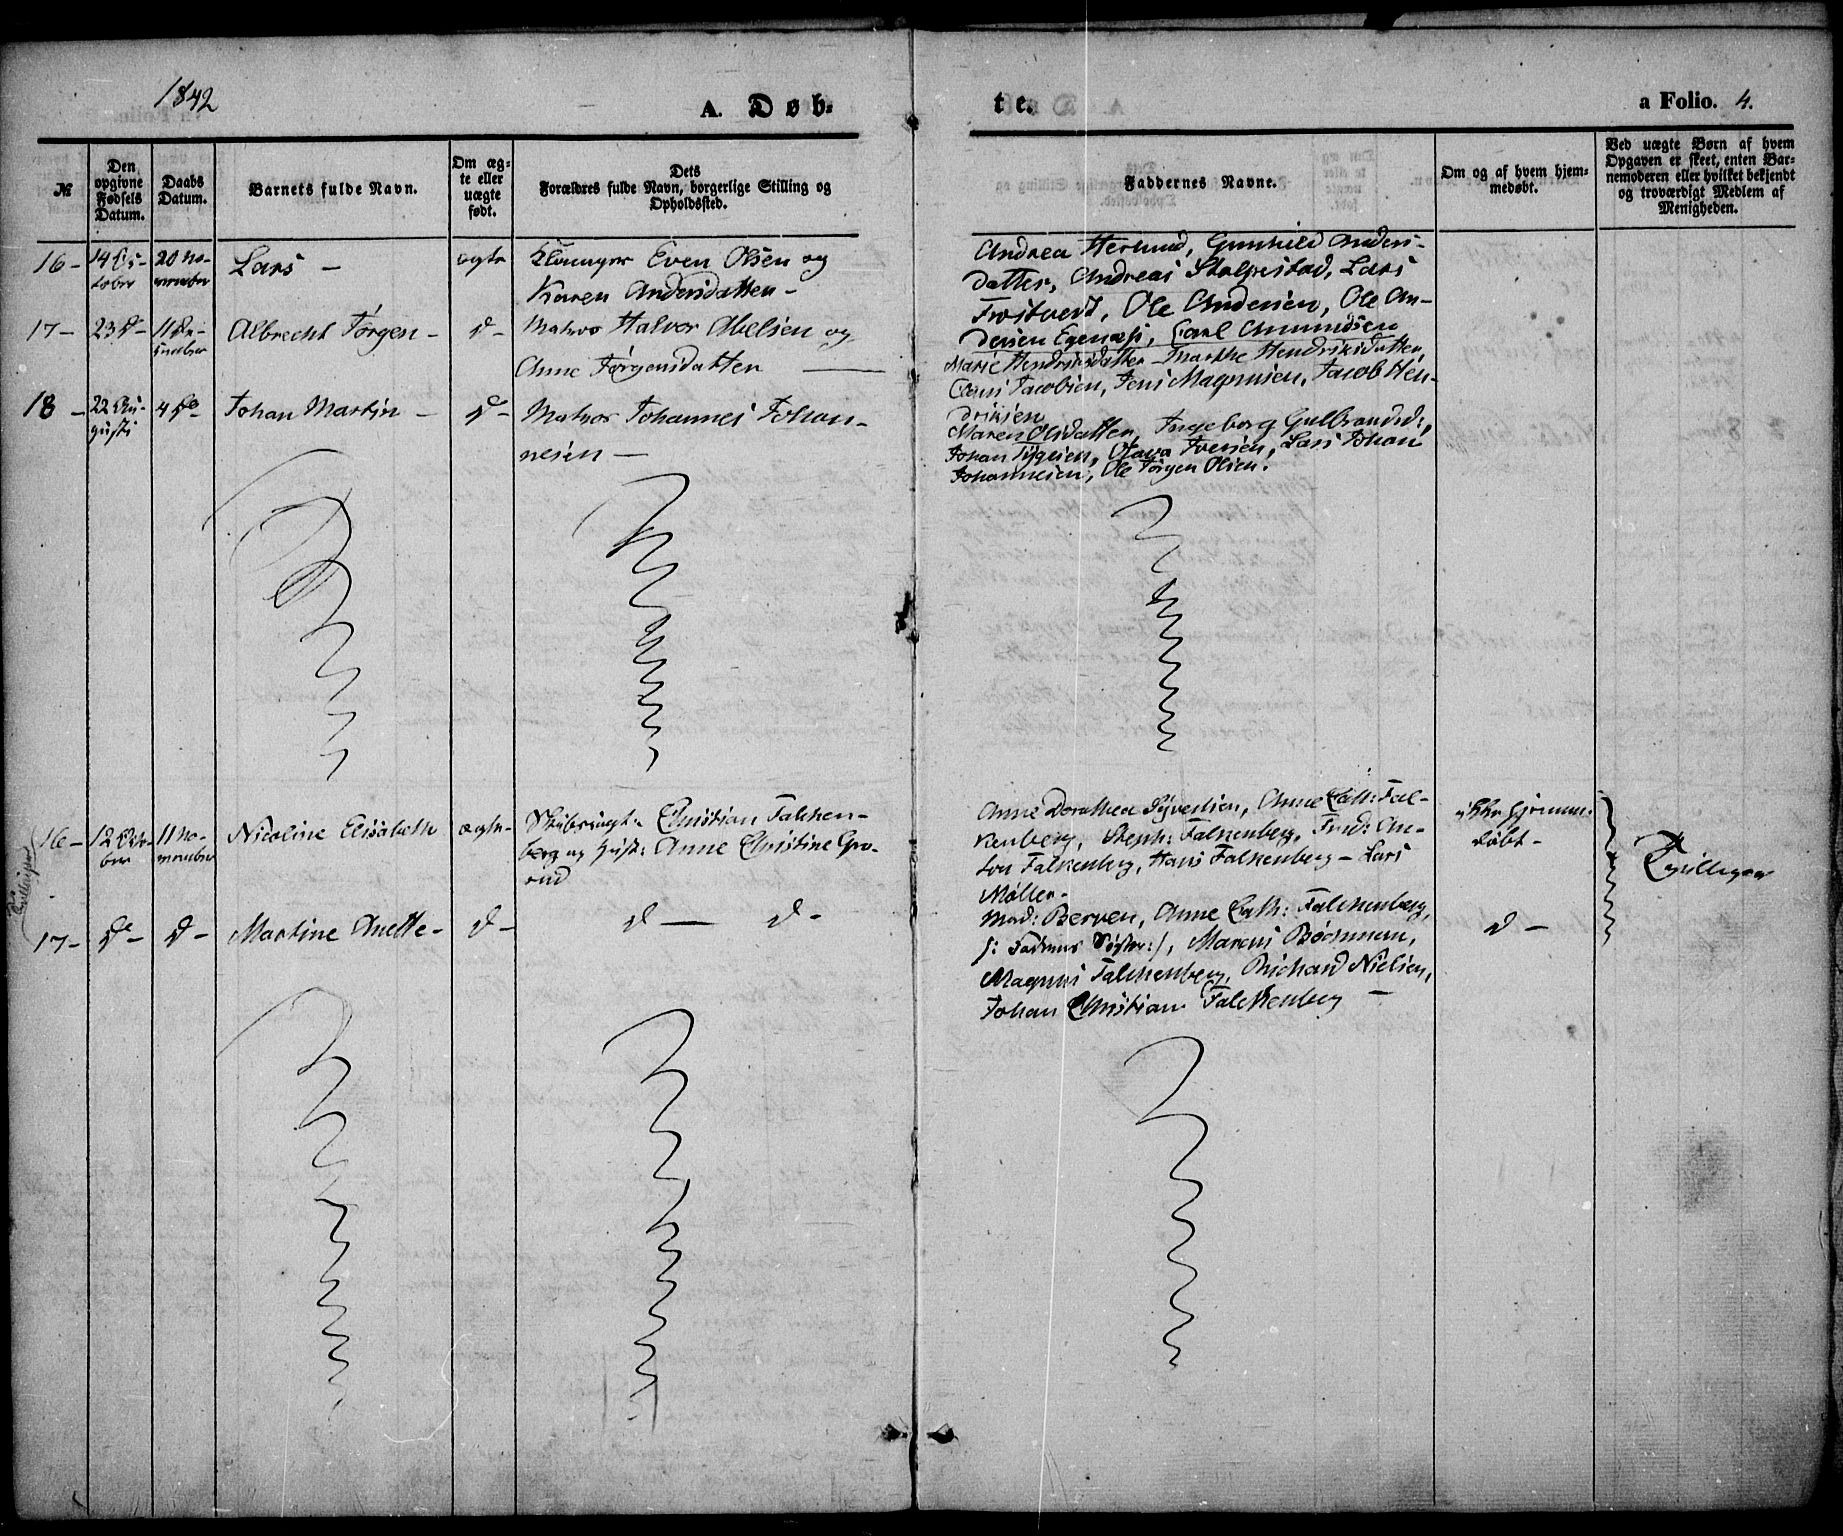 1842
A. Døb-
te.
a Folio. 4.
№
Den opgivne Fødsels Datum.
Daabs Datum.
Barnets fulde Navn.
Om æg-
te eller
uægte
født.
Dets
Forældres fulde Navn, borgerlige Stilling og
Opholdssted.
Faddernes Navne.
Om og af hvem hjem-
medøbt.
Ved uægte Børn af hvem
Opgaven er skeet, enten Bar-
nemoderen eller hvilket bekjendt
og troværdigt Medlem af
Menigheden.
16- 14 Oc- 20 No- Lars - ægte Even Olsen og
tober vember Karen Andersdatter -
Andrea Herlund, Gunhild Anders-
datter, Andreas Stalpestad, Lars
Frostvedt, Ole Andersen, Ole An-
dersen Egenæss, Carl Amundsen
17- 23 d- 11 De- Albrecht Jørgen - d- Matros Halvor Abelsen og
cember Anne Jørgensdatter
Marie Hendriksdatter - Marthe Hendriksdatter
Claus Jacobsen, Jens Magnusen, Jacob Hen-
driksen
18 - 22 Au- 4 do- Johan Martin - d- Matros Johannes Johan-
gusti nesen -
Maren Olsdatter, Ingeborg Gulbrandsd:,
Johan Iversen, Lars Johan
Johannesen, Ole Jørgen Olsen.
16- 12 Octo- 11 No- Nicoline Elisabeth ægte- Christian Falken-
ber vember berg og Hust: Anne Christine Gro-
rud
Anne Dorothea Syvertsen, Anne Cath: Fal-
kenberg, Steph: Falkenberg, Fred: An-
ton Falkenberg, Hans Falkenberg - Lars
Møller.
ikke hjemme-
døbt -
Tvillinger
Tvillinger
17- d- d- Martine Anette- d- d- d-
Mad: Berven, Anne Cath: Falckenberg,
/: Faderens Søster :/, Marcus Bochmann,
Magnus Falckenberg, Richard Nielsen,
Johan Christian Falckenberg -
d -